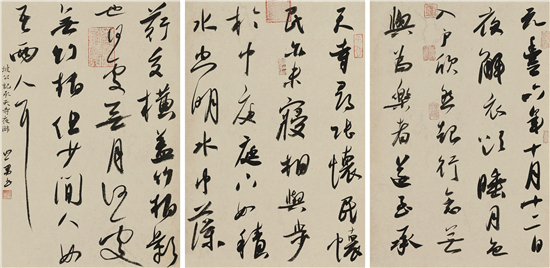 元豐六年十月十二日
夜解衣欲睡月色
入戶欣然起行念無
與為樂者遂至承
天寺尋張懷民懷
民亦未寢相與步
於中庭庭下如積
水空明水中藻
荇交橫蓋竹柏影
也何夜無月何處
無竹柏但少閒人如
吾兩人耳
坡公記承天寺夜游